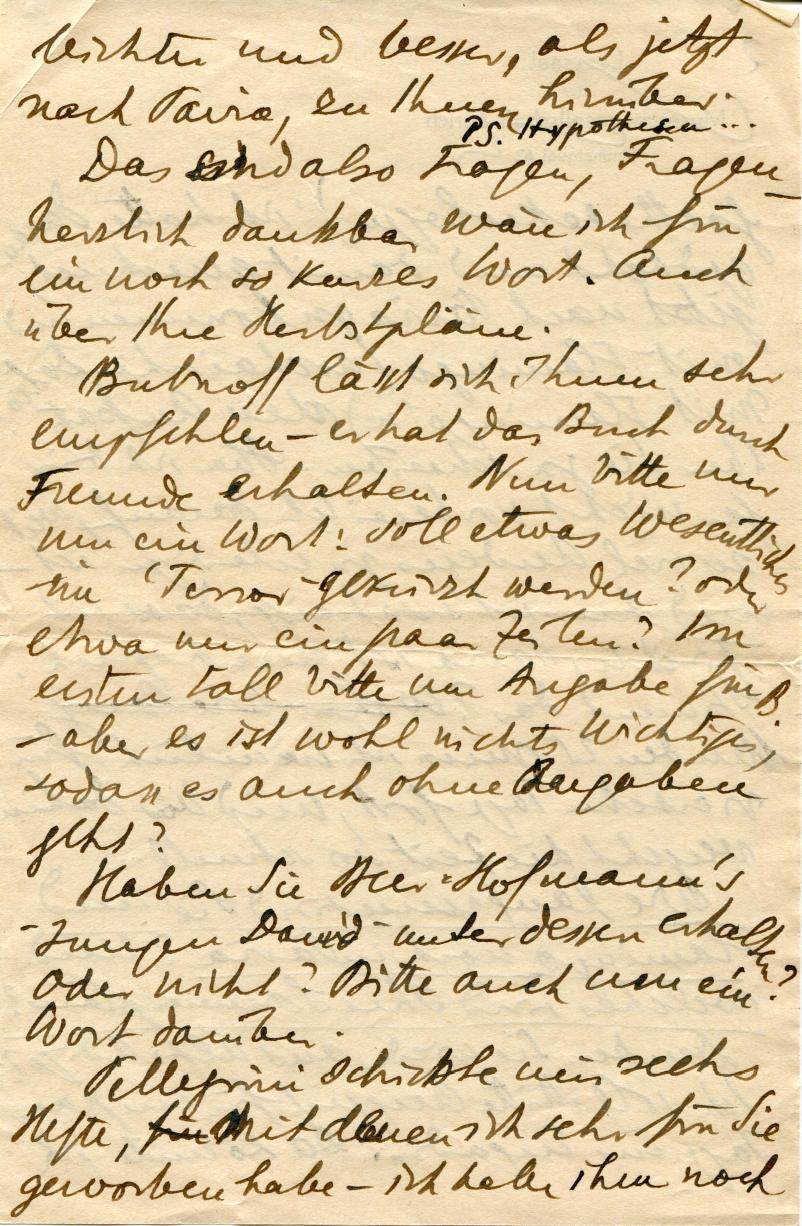 leichter und besser, als jetzt
nach Pavia, zu Ihnen hinüber.
P.S. Hypothesen...
Das sind also Fragen, Fragen –
herzlich dankbar wäre ich für
ein noch so kurzes Wort. Auch
über Ihre Herbstpläne.
Bubnoff lässt sich Ihnen sehr
empfehlen – er hat das Buch durch
Freunde erhalten. Nun bitte nur
um ein Wort: soll etwas Wesentliches
im "Terror" gekürzt werden? oder
etwa nur ein paar Zeilen? Im
ersten Fall bitte um Angabe für B
– aber es ist wohl nichts Wichtiges,
sodass es auch ohne Angaben
geht?
Haben Sie Beer-Hofmann's
"Jungen David" unterdessen erhalten
oder nicht? Bitte auch um ein
Wort darüber.
Pellegrini schickte mir sechs
Hefte, mit denen ich sehr für Sie
geworben habe – ich habe ihm noch